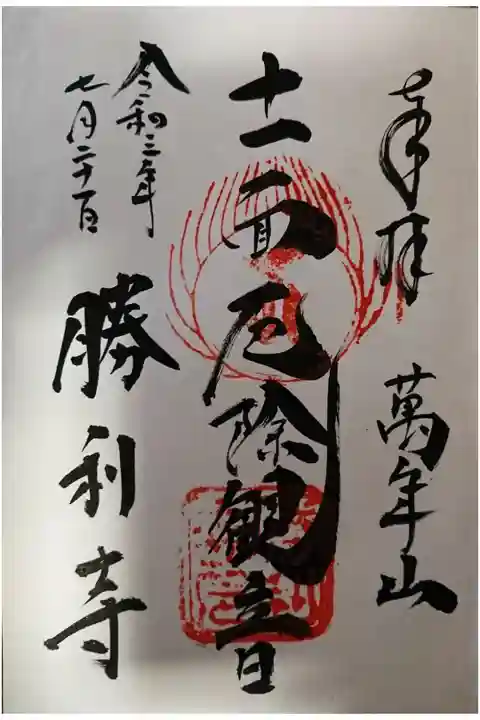 奉拝 萬年山
十一面厄除観音
令和三年
七月二十一日
勝利寺